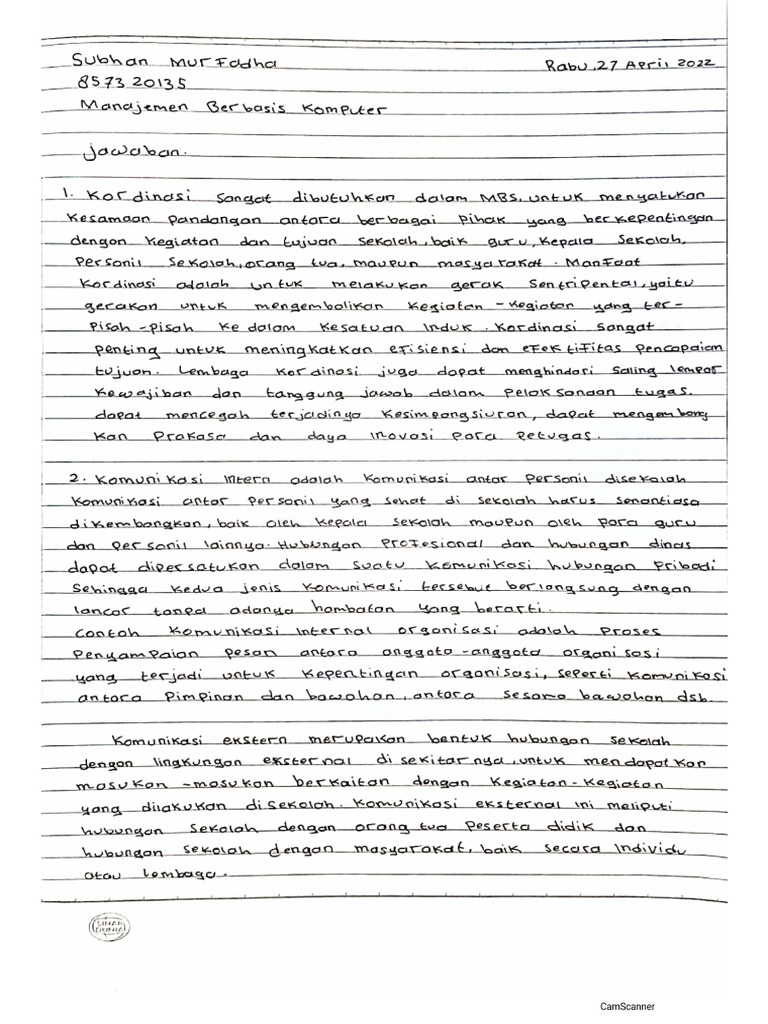 Subhan Murfadha
Rabu, 27 April 2022
857320135
Manajemen Berbasis Komputer
Jawaban.
1. Kordinasi sangat dibutuhkan dalam MBS. untuk menyatukan
kesamaan pandangan antara berbagai pihak yang berkepentingan
dengan kegiatan dan tujuan sekolah, baik guru, kepala sekolah,
personil sekolah, orang tua, maupun masyarakat. Manfaat
kordinasi adalah untuk melakukan gerak sentripental, yaitu
gerakan untuk mengembalikan kegiatan-kegiatan yang ter-
pisah-pisah ke dalam kesatuan induk. Kordinasi sangat
penting untuk meningkatkan efisiensi dan efektifitas pencapaian
tujuan. Lembaga kordinasi juga dapat menghindari saling lempar
kewajiban dan tanggung jawab dalam pelaksanaan tugas.
dapat mencegah terjadinya kesimpangsiuran, dapat mengembang
kan prakasa dan daya inovasi para petugas.
2. Komunikasi intern adalah komunikasi antar personil disekolah
komunikasi antar personil yang sehat di sekolah harus senantiasa
dikembangkan, baik oleh kepala sekolah maupun oleh para guru
dan personil lainnya. Hubungan profesional dan hubungan dinas
dapat dipersatukan dalam suatu komunikasi hubungan pribadi
sehingga kedua jenis komunikasi tersebut berlangsung dengan
lancar tanpa adanya hambatan yang berarti.
Contoh komunikasi internal organisasi adalah proses
penyampaian pesan antara anggota-anggota organisasi
yang terjadi untuk kepentingan organisasi, seperti komunikasi
antara pimpinan dan bawahan, antara sesama bawahan dsb.
Komunikasi ekstern merupakan bentuk hubungan sekolah
dengan lingkungan eksternal di sekitarnya, untuk mendapatkan
masukan-masukan berkaitan dengan kegiatan-kegiatan
yang dilakukan disekolah. Komunikasi eksternal ini meliputi
hubungan sekolah dengan orang tua peserta didik dan
hubungan sekolah dengan masyarakat, baik secara individu
atau lembaga.
SINAR
DUNIA
CamScanner